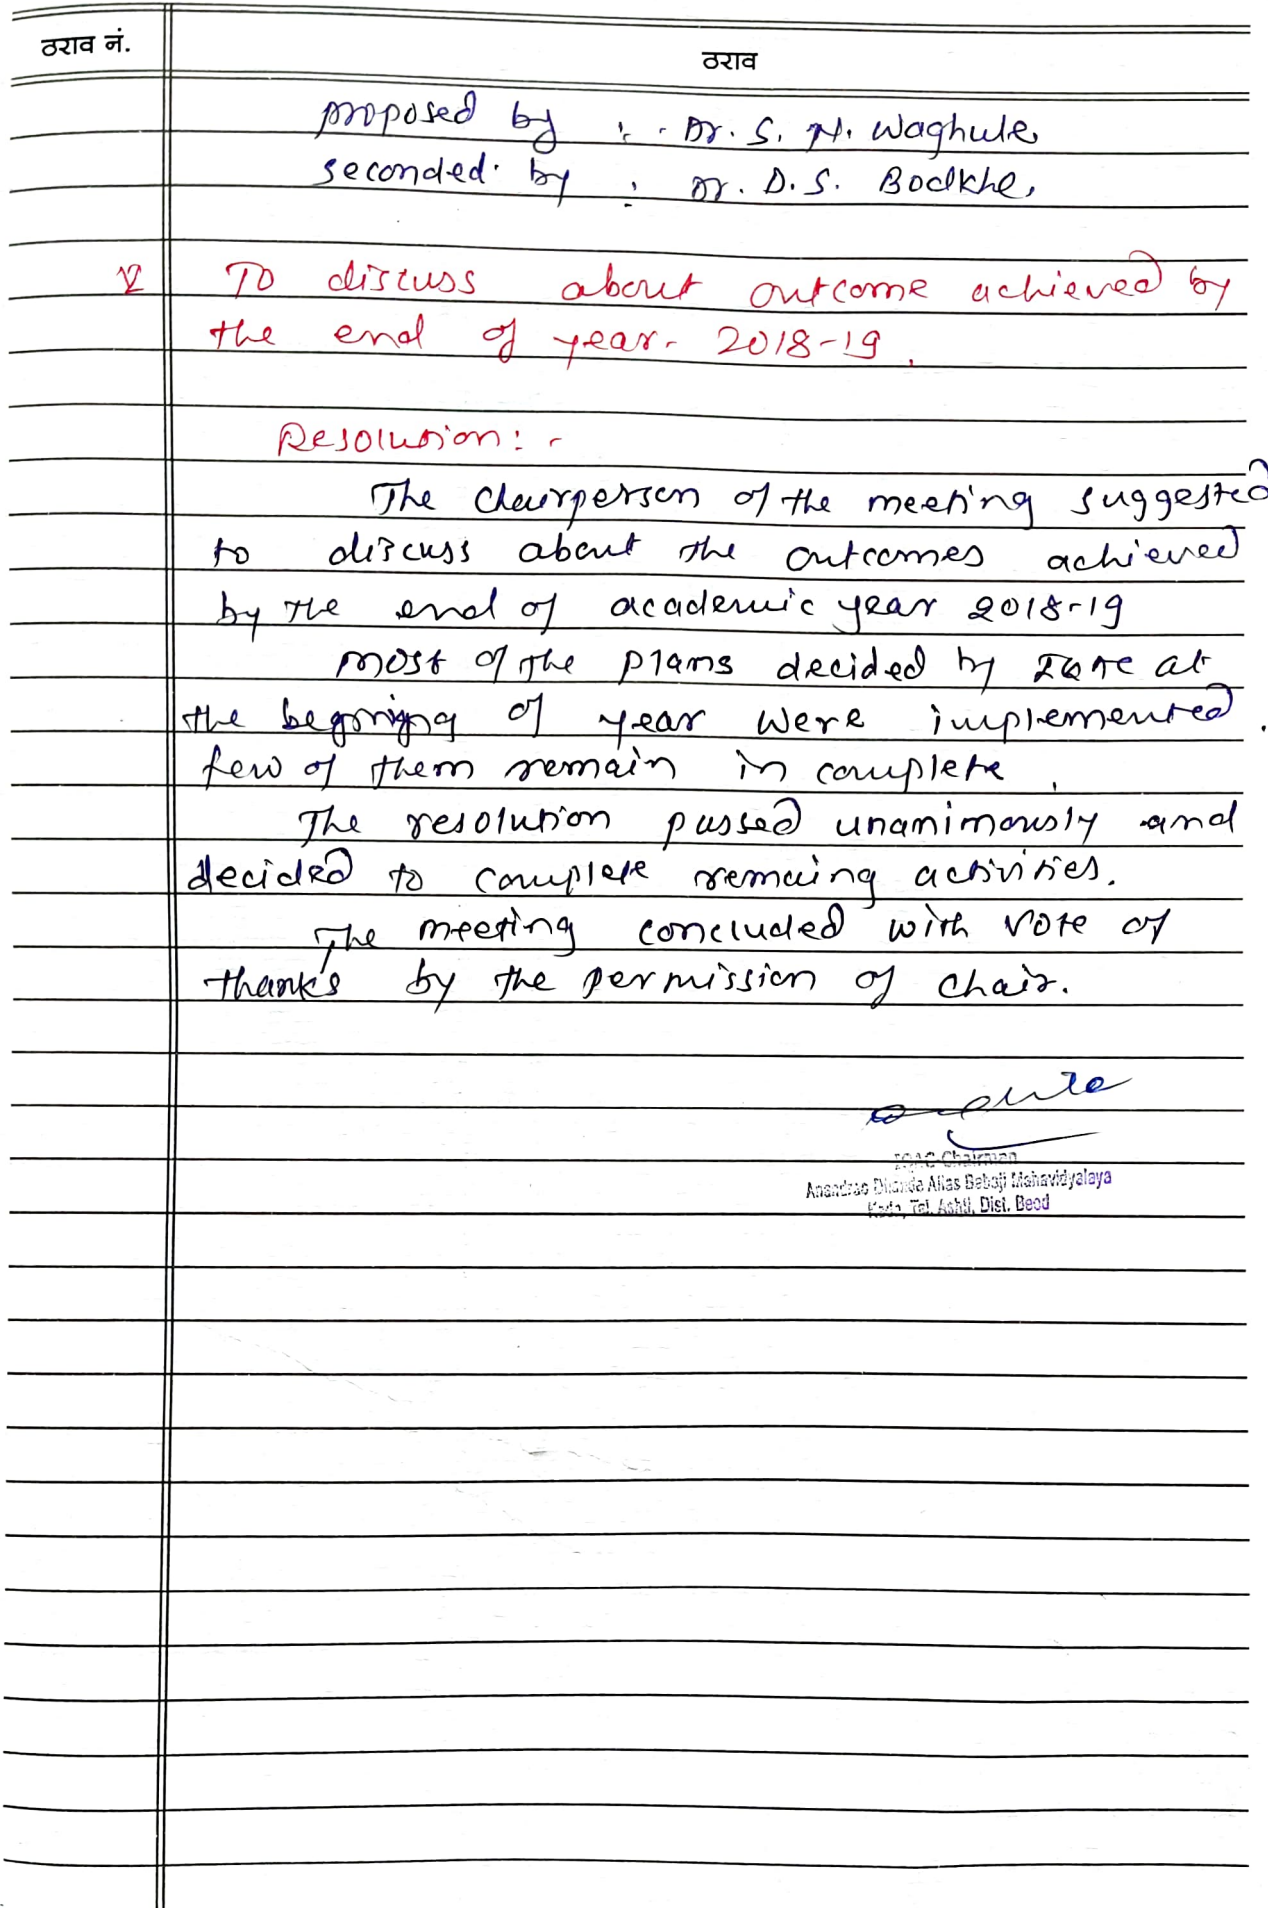 ठराव नं.
ठराव
proposed by : - Dr. S. N. Waghule
seconded by : Dr. D. S. Bodkhe,
V To discuss about outcome achieved by
the end of year- 2018-19.
Resolution: -
The Chairperson of the meeting suggested
to discuss about the outcomes achieved
by the end of academic year 2018-19
most of the plans decided by at
the of year were implemented.
few of them remain in complete.
The resolution passed unanimously and
decided to complete remaing activities.
The meeting concluded with vote of
thanks by the permission of chair.
IQAC Chairman
Anandrao Dhonde Alias Babaji Mahavidyalaya
Kada, Tal. Ashti, Dist. Beed